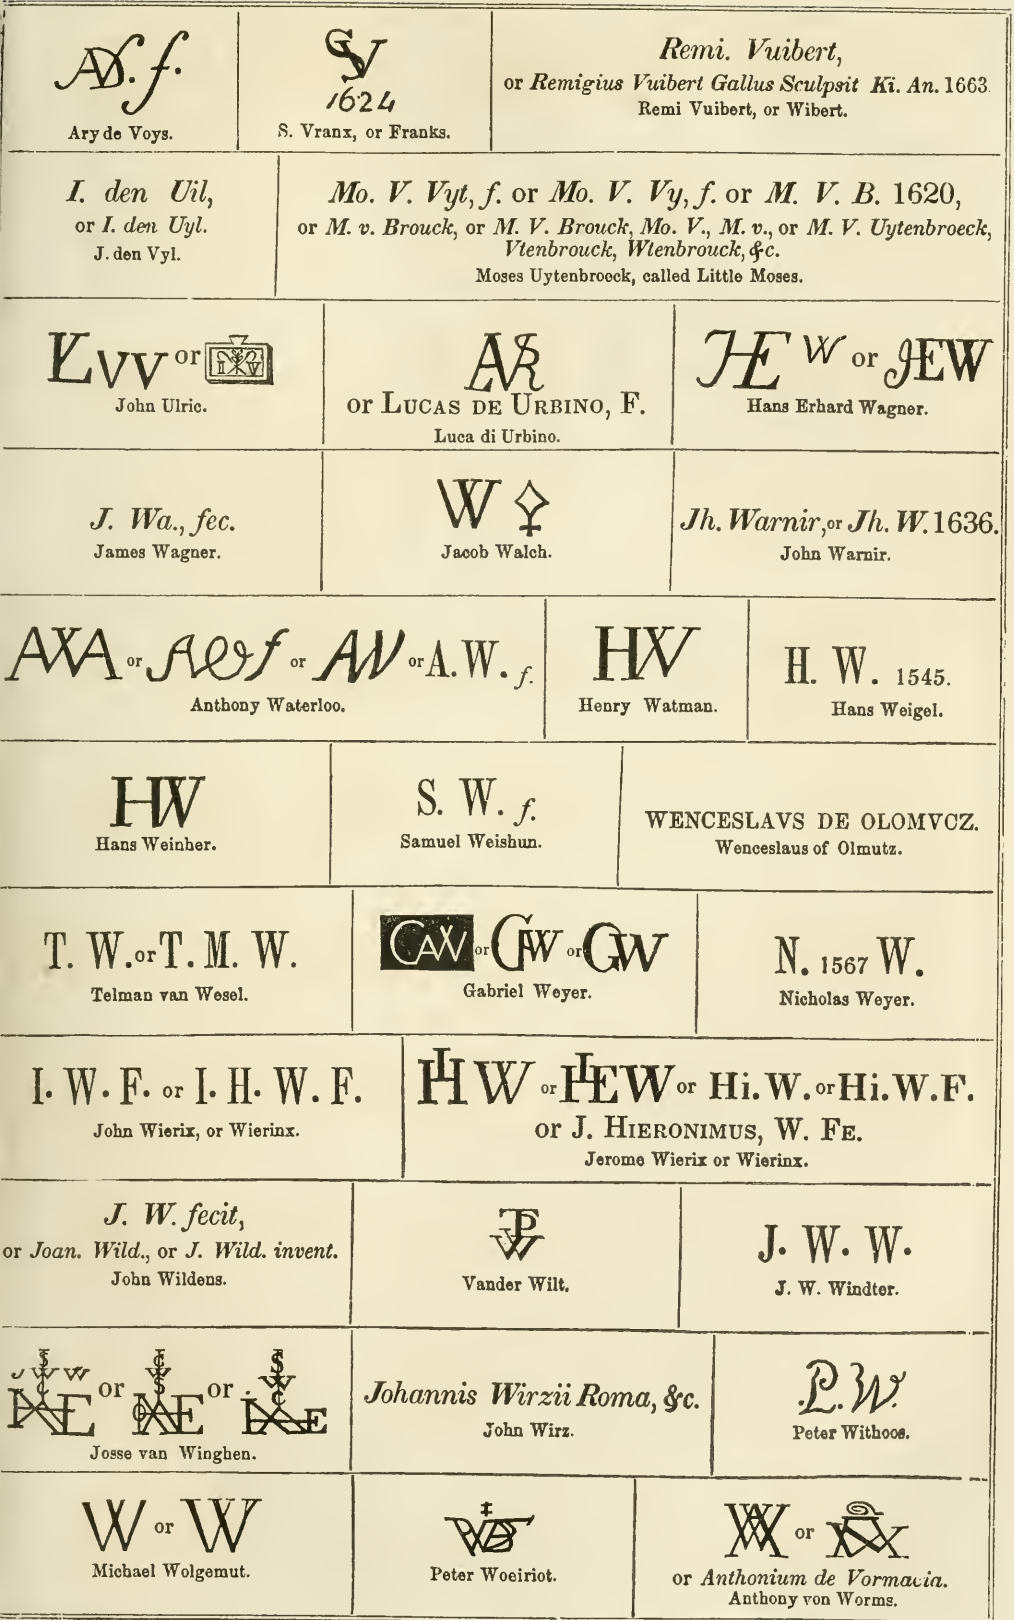 Ary de Voys.
1624
S. Vranx, or Franks.
Remi. Vuibert,
or Remigius Vuibert Gallus Sculpsit Ki. An. 1663.
Remi Vuibert, or Wibert.
I. den Uil,
or I. den Uyl.
J. den Vyl.
Mo. V. Vyt, f. or Mo. V. Vy, f. or M. V. B. 1620,
or M. v. Brouck, or M. V. Brouck, Mo. V., M. v., or M. V. Uytenbroeck,
Vtenbrouck, Wtenbrouck, &c.
Moses Uytenbroeck, called Little Moses.
or
John Ulric.
or LUCAS DE URBINO, F.
Luca di Urbino.
or JEW
Hans Erhard Wagner.
J. Wa., fec.
James Wagner.
W
Jacob Walch.
Jh. Warnir, or Jh. W. 1636.
John Warnir.
or or or A. W. f.
Anthony Waterloo.
HW
Henry Watman.
H. W. 1545.
Hans Weigel.
HW
Hans Weinher.
S. W. f.
Samuel Weishun.
WENCESLAVS DE OLOMVCZ.
Wenceslaus of Olmutz.
T. W. or T. M. W.
Telman van Wesel.
or or GW
Gabriel Weyer.
N. 1567 W.
Nicholas Weyer.
I. W. F. or I. H. W. F.
John Wierix, or Wierinx.
or or Hi. W. or Hi. W. F.
or J. HIERONIMUS, W. FE.
Jerome Wierix or Wierinx.
J. W. fecit,
or Joan. Wild., or J. Wild. invent.
John Wildens.
Vander Wilt.
J. W. W.
J. W. Windter.
or or
Josse van Winghen.
Johannis Wirzii Roma, &c.
John Wirz.
P. W.
Peter Withoos.
W or W
Michael Wolgemut.
Peter Woeiriot.
or
or Anthonium de Vormacia.
Anthony von Worms.